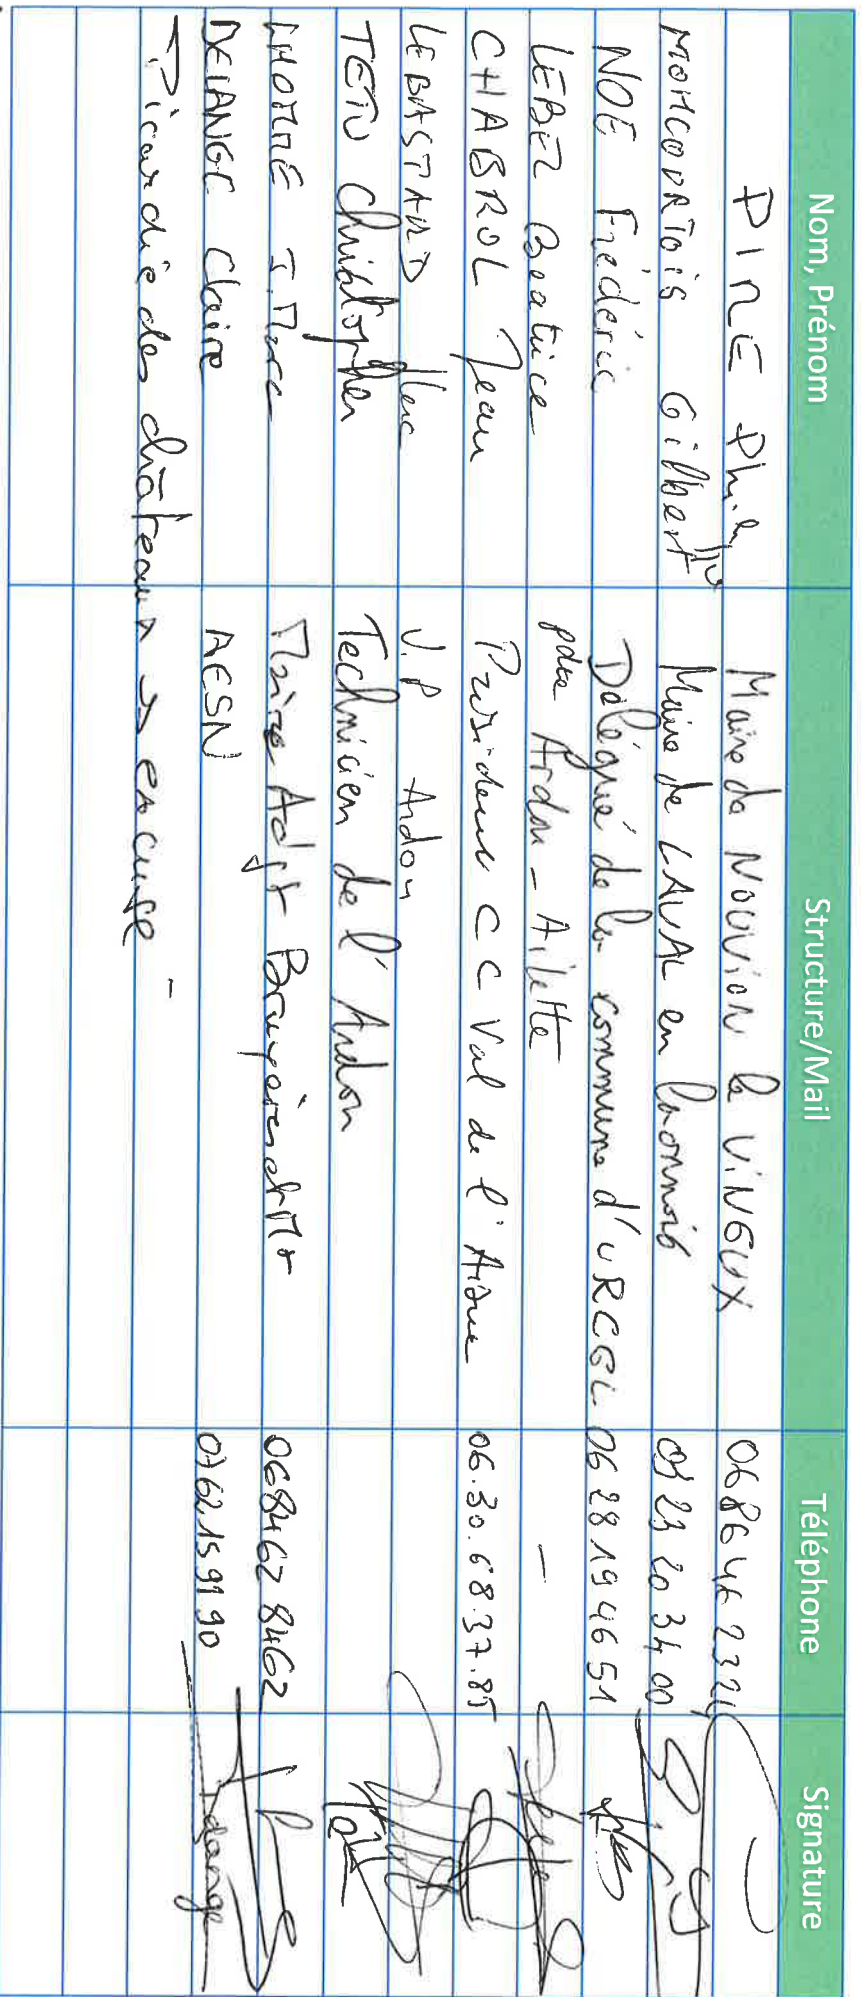 Nom, Prénom Structure/Mail Téléphone Signature
PINE Maire de NOUVION le VINEUX 0686462324
MONCOURTOIS Gilbert Maire de LAVAL en Laonnois 03 23 20 34 00
NOE Frédéric Délégué de la commune d'URCEL 06 28 19 46 51
LEBEL Beatrice Ardon - Ailette -
CHABROL Jean President CC Val de l'Aisne 06.30.68.37.85
LEBASTARD V.P Ardon
TETU Christopher Technicien de l'Ardon
LHOMME J.Marc Maire Adjt Bruyères et Mt 0684628462
DELANGE Claire AESN 0762159190 Delange
Picardie des châteaux excusé -